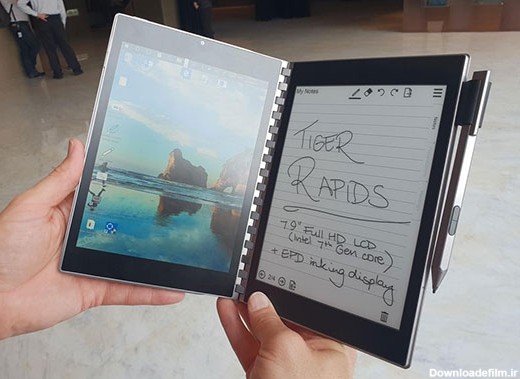 My Notes
TIGER
RAPIDS
7.9" Full HD LCD
(Intel 7th Gen core)
+ EPD inking display
2/4
Downloadefilm.ir